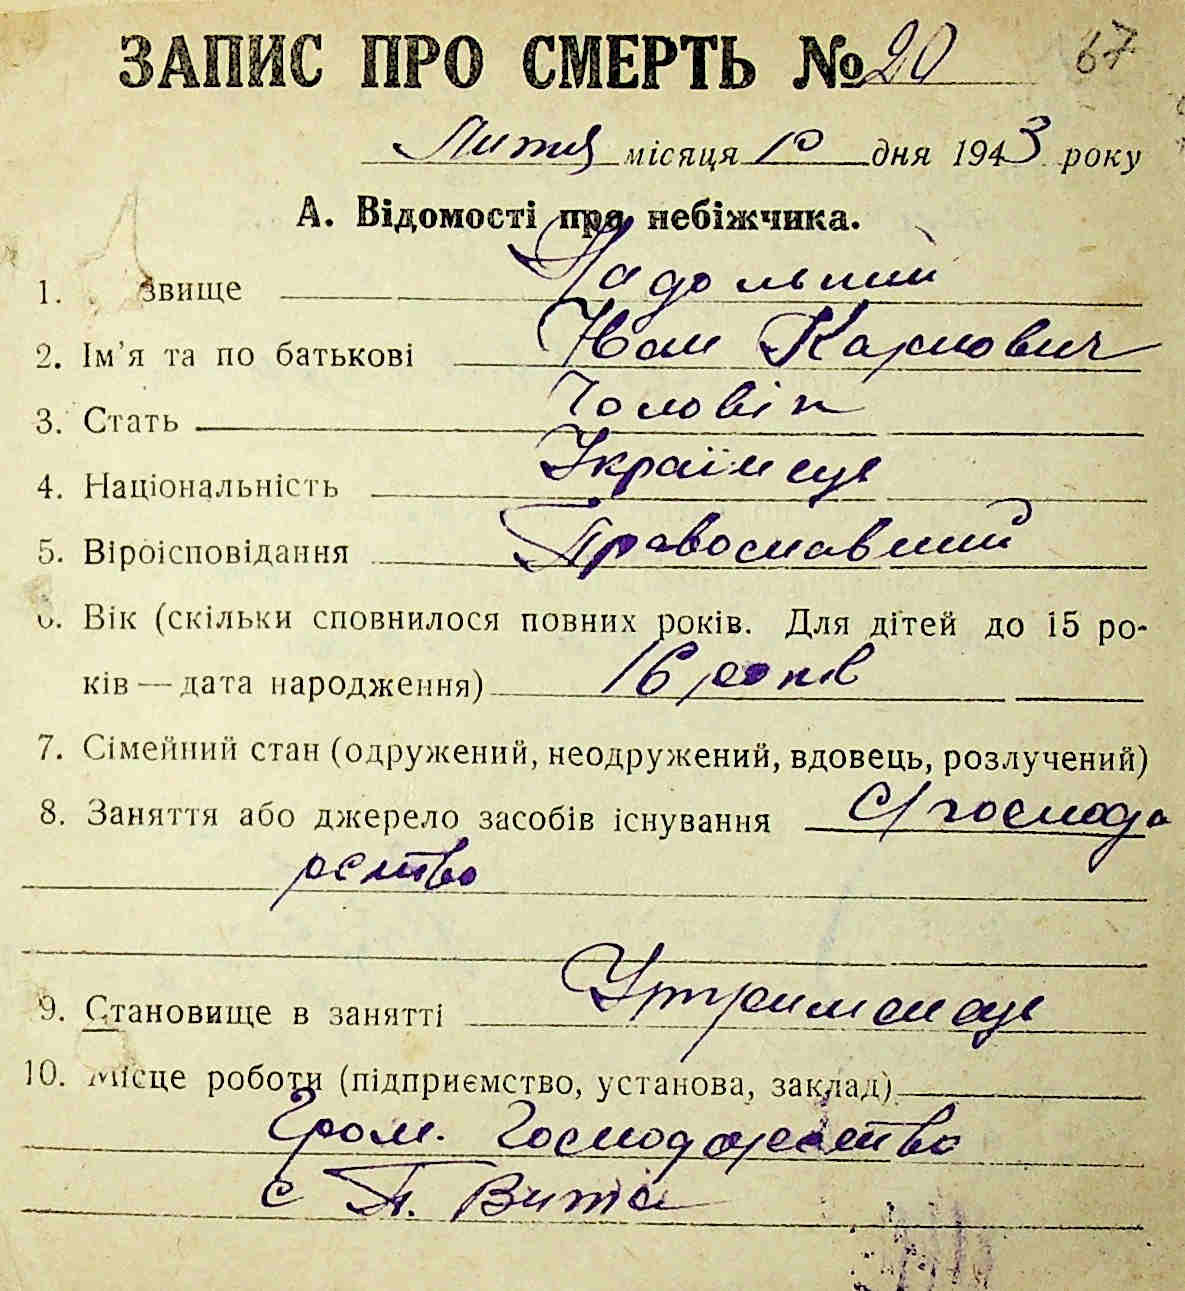 ЗАПИС ПРО СМЕРТЬ № 20 67
Липня місяця 10 дня 1943 року
А. Відомості про небіжчика.
1. звище Надольний
2. Ім'я та по батькові Іван Карпович
3. Стать Чоловік
4. Національність Українець
5. Віроісповідання Православний
6. Вік (скільки сповнилося повних років. Для дітей до 15 ро-
ків — дата народження) 16 років
7. Сімейний стан (одружений, неодружений, вдовець, розлучений)
8. Заняття або джерело засобів існування с/господа
рство
9. Становище в занятті Утриманець
10. Місце роботи (підприємство, установа, заклад)
Гром. Господарство
с П.